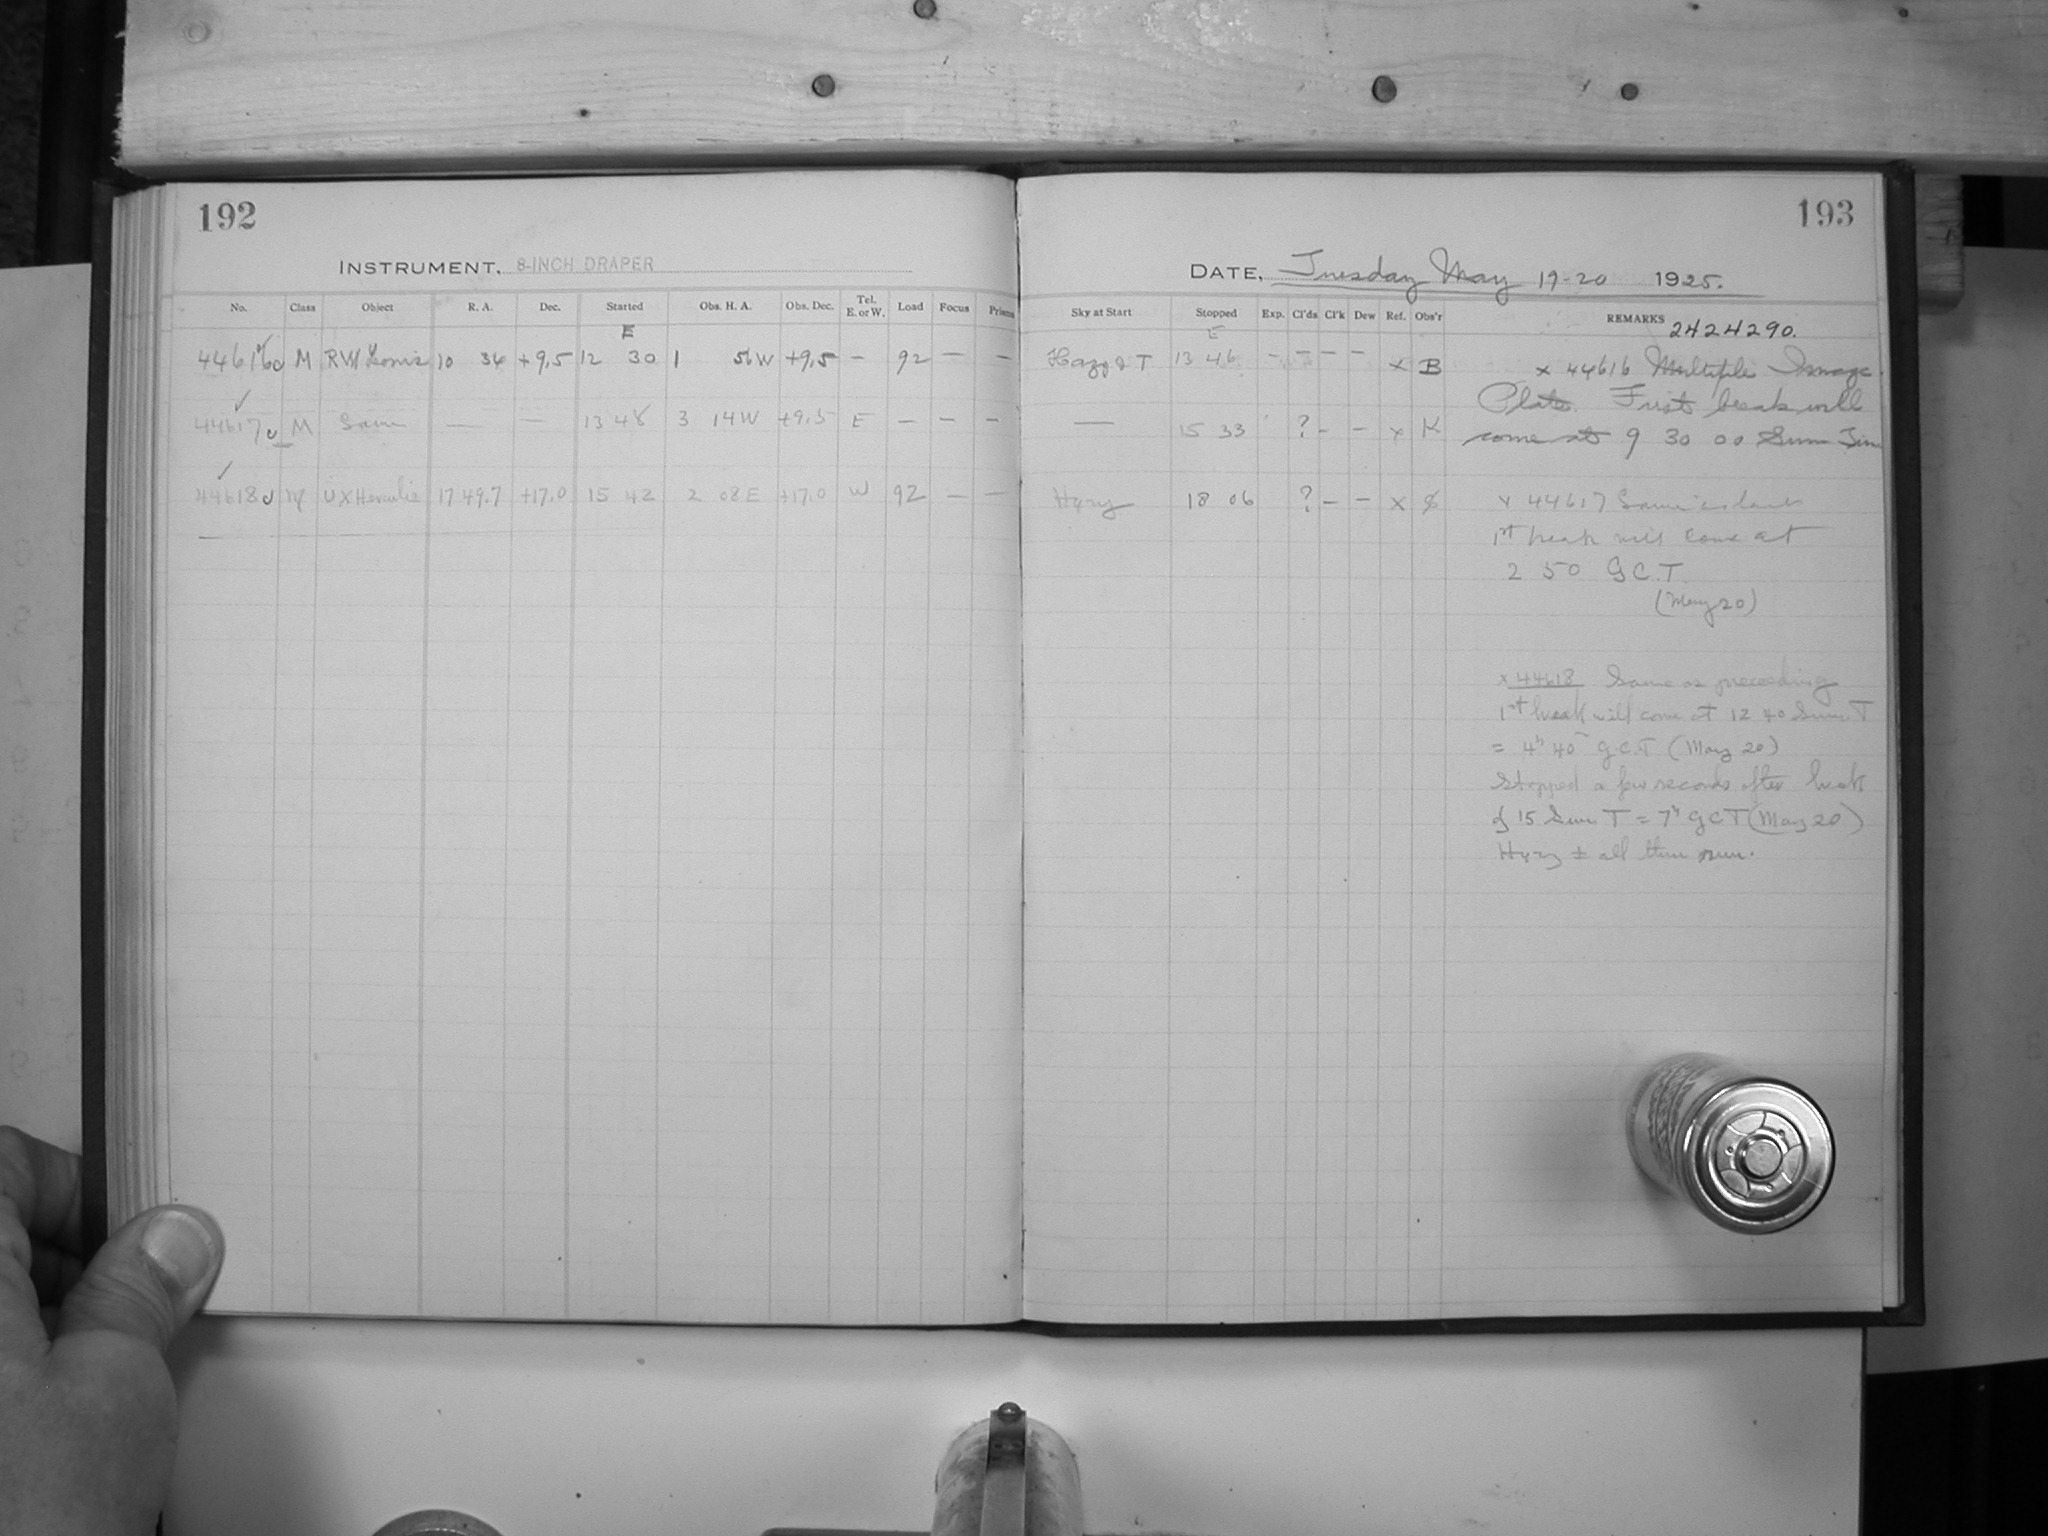 192
INSTRUMENT. 8-INCH DRAPER
No. Class Object R. A. Dec. Started Obs. H. A. Obs. Dec. Tel. E. or W. Load Focus Prisms
E
44616 M RW 10 34 +9.5 12 30 1 56 W +9.5 – 92 – –
44617 M Same — — 13 48 3 14 W +9.5 E – – –
44618 M UX Herculis 17 49.7 +17.0 15 42 2 08 E +17.0 W 92 – –
193
DATE, Tuesday May 19-20 1925.
Sky at Start Stopped Exp. Cl'ds Cl'k Dew Ref. Obs'r REMARKS
E 2424290.
Hazy & T 13 46 – – – – x B x 44616 Multiple Image
Plate. First break will
— 15 33 ? – – x K come at 9 30 00 Sum Tim
Hazy 18 06 ? – – x x 44617 Same as last
1st break will come at
2 50 G.C.T.
(May 20)
x 44618 Same as preceeding
1st break will come at 12 40 Sum. T
= 4h 40m G.C.T (May 20)
Stopped a few seconds after break
of 15 Sum T = 7h GCT (May 20)
Hazy ± all thru run.